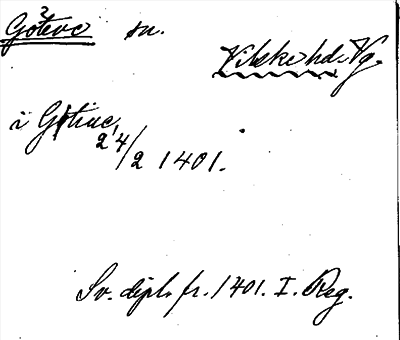 Göteve sn.
Vilske hd. Vg.
i Götiue,
24/2 1401.
Sv. dipl. fr. 1401. I. Reg.